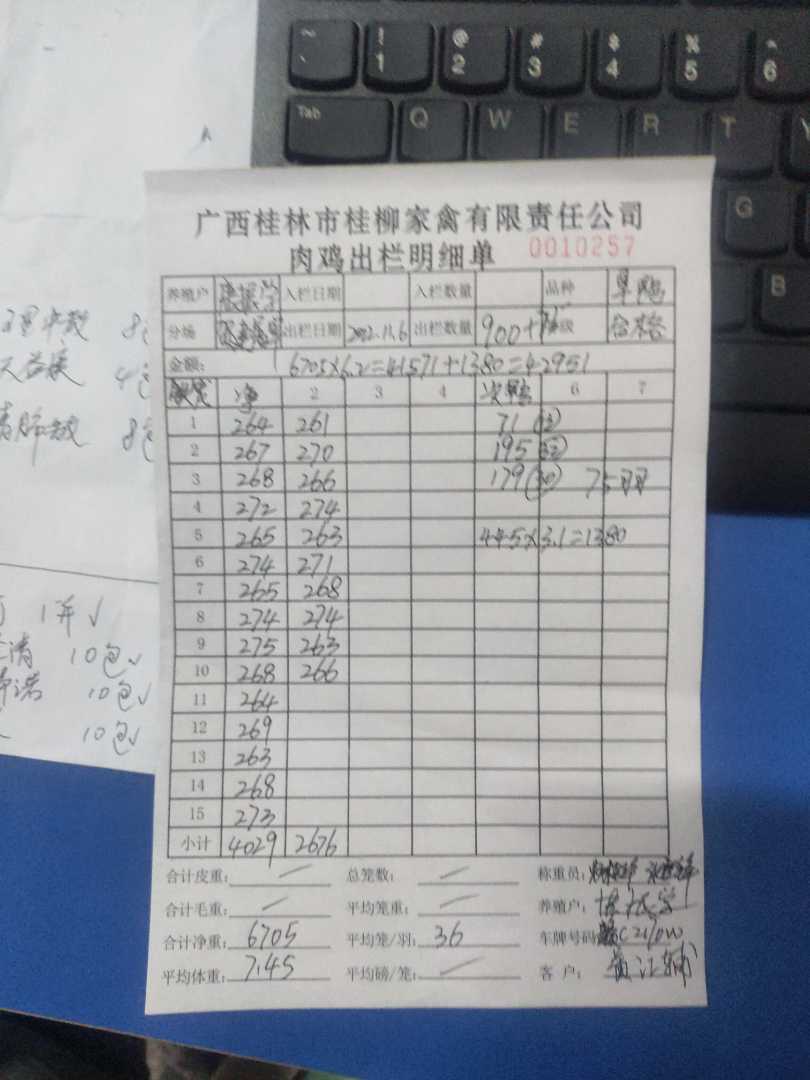 ~ ! @ # $ % ^
` 1 2 3 4 5 6
Tab Q W E R T
G
B
8
4
8
1并√
清 10包√
诺 10包√
10包√
广西桂林市桂柳家禽有限责任公司
肉鸡出栏明细单 0010257
养殖户 入栏日期 入栏数量 品种 旱鸭
分场 出栏日期 2022.11.6 出栏数量 900+ 级 合格
金额: 6705×6.2=41571+1380=42951
净 2 3 4 次鸭 6 7
1 264 261 71
2 267 270 195
3 268 266 179 (30) 75羽
4 272 274
5 265 263 445×3.1=1380
6 274 271
7 265 268
8 274 274
9 275 263
10 268 266
11 264
12 269
13 263
14 268
15 273
小计 4029 2676
合计皮重: 总笼数: 称重员:
合计毛重: 平均笼重: 养殖户:
合计净重: 6705 平均笼/羽: 36 车牌号码
平均体重: 7.45 平均磅/笼: 客户: